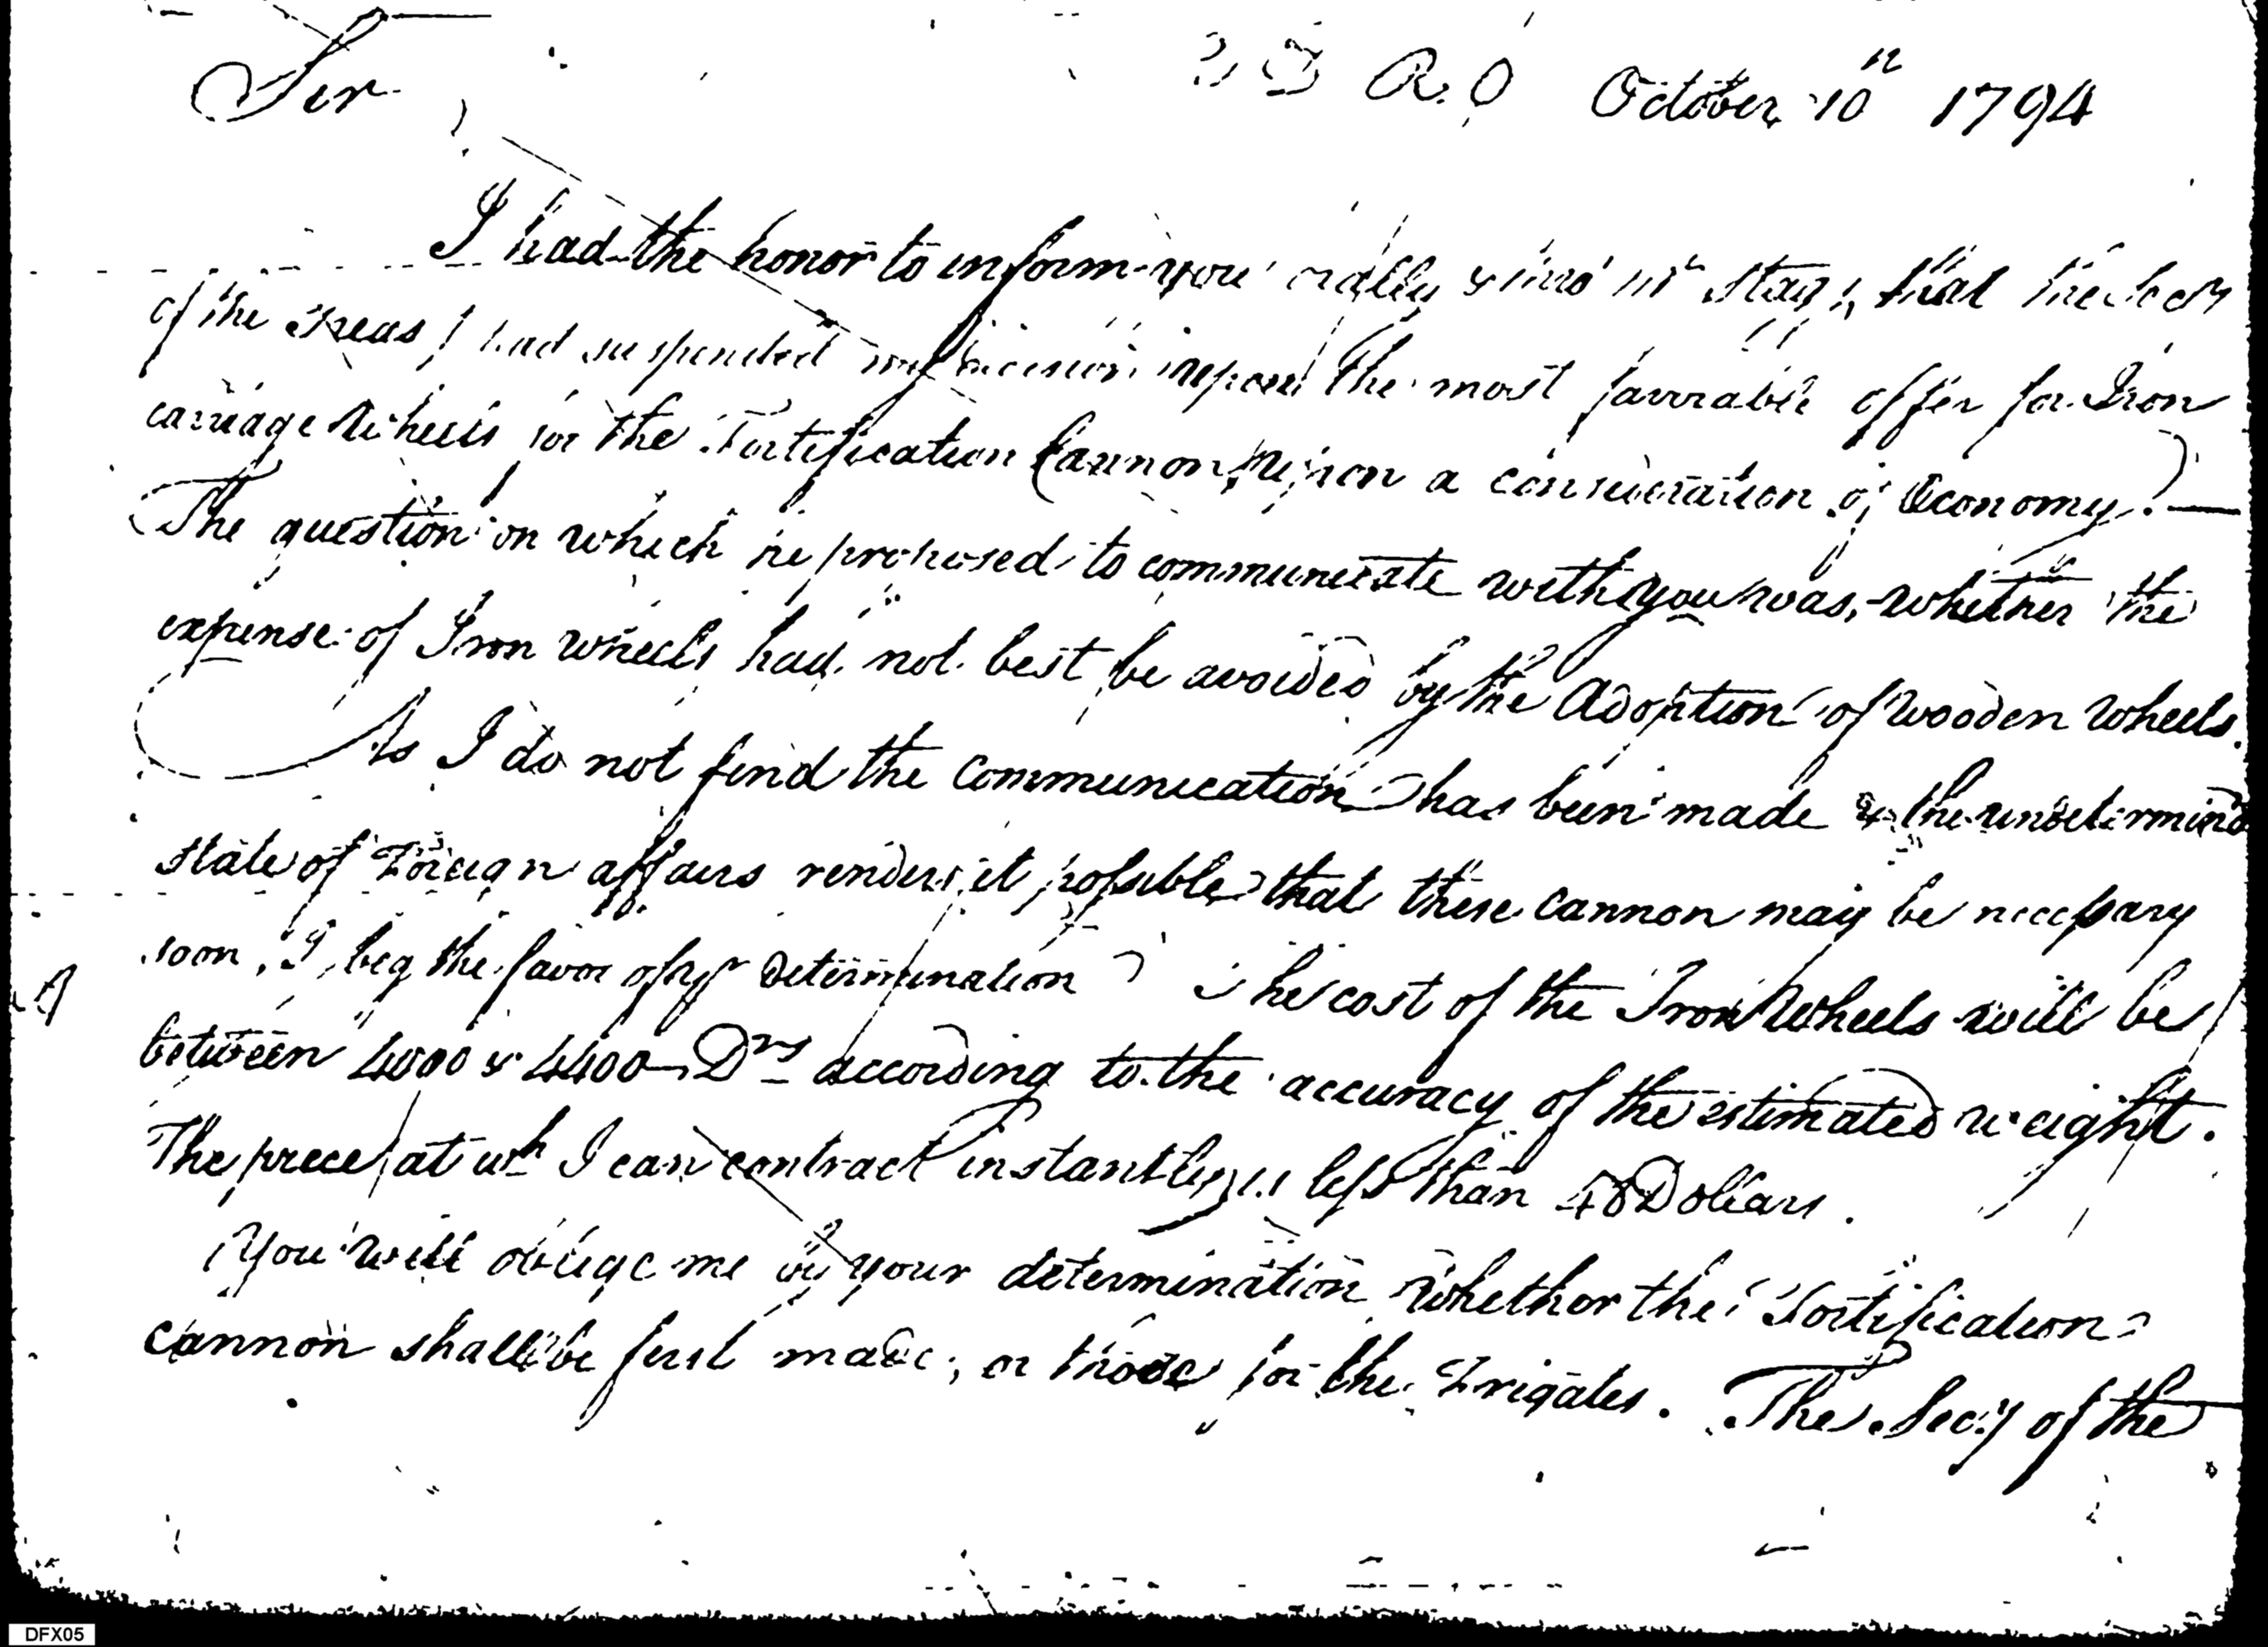 Sir
R. O October 10th 1794
I had the honor to inform you orally & thro' Mr Stagg, that the Secy
of the Treasy had suspended my decision upon the most favorable offer for Iron
carriage Wheels for the Fortification Cannon, upon a consideration of Economy. —
The question on which he proposed to communicate with you was, whether the
expense of Iron wheels had not best be avoided by the Adoption of wooden wheels.
As I do not find the communication has been made & the undetermind
state of Foreign affairs renders it possible that these cannon may be necessary
soon, I beg the favor of yr determination The cost of the Iron Wheels will be
between 4000 & 4400 Drs according to the accuracy of the estimated weight.
The price at wh I can contract instantly is less than 48 Dollars.
You will oblige me by your determination whether the Fortification
cannon shall be first made, or those for the Frigates. The Secy of the
DFX05